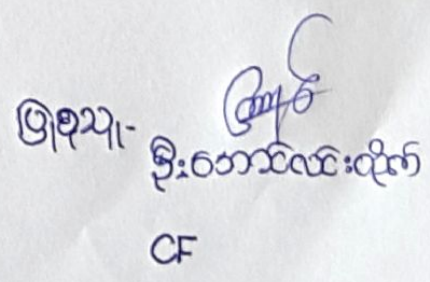 ပြုစုသူ-
ဦးအောင်လင်းထိုက်
CF